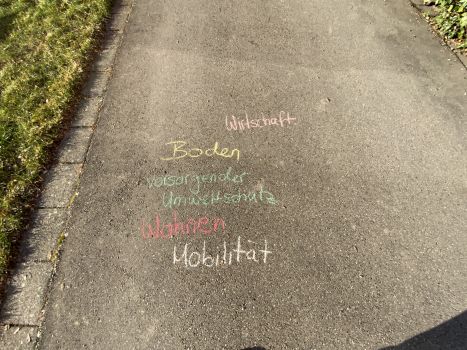 Wirtschaft
Boden
vorsorgender
Umweltschutz
Wohnen
Mobilität